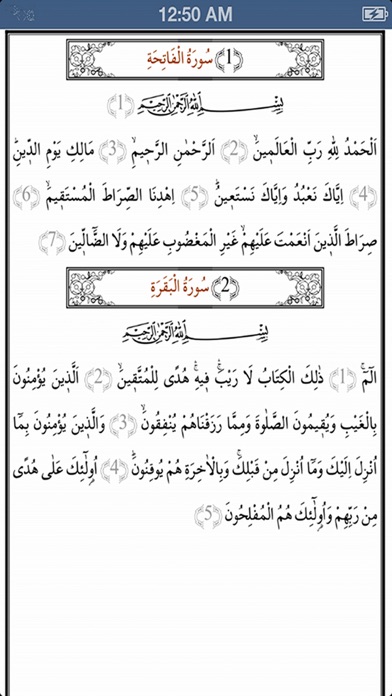 12:50 AM
(1) سُورَةُ الْفَاتِحَةِ
بِسْمِ اللّٰهِ الرَّحْمٰنِ الرَّحِيمِ (1)
اَلْحَمْدُ لِلّٰهِ رَبِّ الْعَالَمِينَۙ (2) اَلرَّحْمٰنِ الرَّحِيمِۙ (3) مَالِكِ يَوْمِ الدِّينِۜ
(4) اِيَّاكَ نَعْبُدُ وَاِيَّاكَ نَسْتَعِينُۜ (5) اِهْدِنَا الصِّرَاطَ الْمُسْتَقِيمَۙ (6)
صِرَاطَ الَّذِينَ اَنْعَمْتَ عَلَيْهِمْۙ غَيْرِ الْمَغْضُوبِ عَلَيْهِمْ وَلَا الضَّٓالِّينَ (7)
(2) سُورَةُ الْبَقَرَةِ
بِسْمِ اللّٰهِ الرَّحْمٰنِ الرَّحِيمِ
الٓمٓۚ (1) ذٰلِكَ الْكِتَابُ لَا رَيْبَۚۛ فِيهِۚۛ هُدًى لِلْمُتَّقِينَۙ (2) اَلَّذِينَ يُؤْمِنُونَ
بِالْغَيْبِ وَيُقِيمُونَ الصَّلٰوةَ وَمِمَّا رَزَقْنَاهُمْ يُنْفِقُونَۙ (3) وَالَّذِينَ يُؤْمِنُونَ بِمَٓا
اُنْزِلَ اِلَيْكَ وَمَٓا اُنْزِلَ مِنْ قَبْلِكَۚ وَبِالْاٰخِرَةِ هُمْ يُوقِنُونَۜ (4) اُو۬لٰٓئِكَ عَلٰى هُدًى
مِنْ رَبِّهِمْ وَاُو۬لٰٓئِكَ هُمُ الْمُفْلِحُونَ (5)